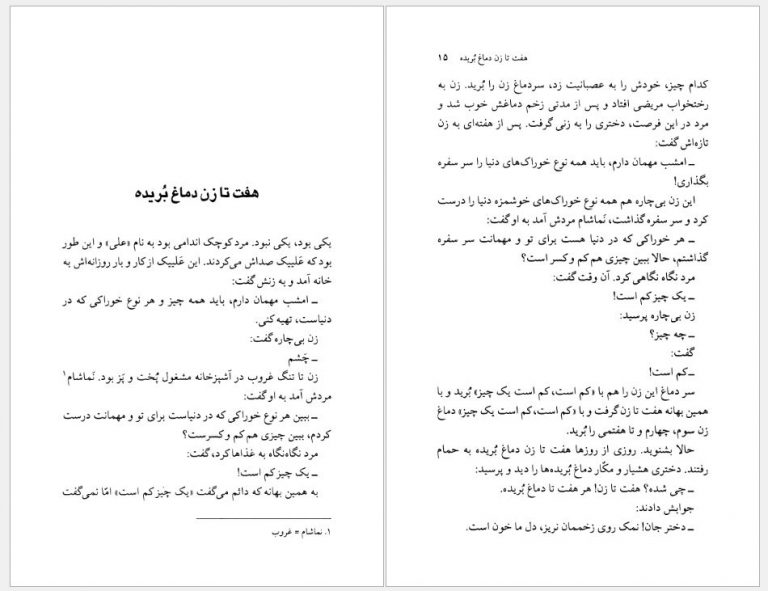 هفت تا زن دماغ بُریده
یکی بود، یکی نبود. مرد کوچک اندامی بود به نام «علی» و این طور
بود که عَلیبک صداش می‌کردند. این عَلیبک از کار و بار روزانه‌اش به
خانه آمد و به زنش گفت:
ــ امشب مهمان دارم، باید همه چیز و هر نوع خوراکی که در
دنیاست، تهیه کنی.
زن بی‌چاره گفت:
ــ چَشم
زن تا تنگ غروب در آشپزخانه مشغول پُخت و پَز بود. نَماشام۱
مردش آمد به او گفت:
ــ ببین هر نوع خوراکی که در دنیاست برای تو و مهمانت درست
کردم، ببین چیزی هم کم و کسرست؟
مرد نگاه‌نگاه به غذاها کرد، گفت:
ــ یک چیز کم است!
به همین بهانه که دائم می‌گفت «یک چیز کم است» امّا نمی‌گفت
۱. نماشام = غروب
هفت تا زن دماغ بُریده ۱۵
کدام چیز، خودش را به عصبانیت زد، سردماغ زن را بُرید. زن به
رختخواب مریضی افتاد و پس از مدتی زخم دماغش خوب شد و
مرد در این فرصت، دختری را به زنی گرفت. پس از هفته‌ای به زن
تازه‌اش گفت:
ــ امشب مهمان دارم، باید همه نوع خوراک‌های دنیا را سر سفره
بگذاری!
این زن بی‌چاره هم همه نوع خوراک‌های خوشمزه دنیا را درست
کرد و سر سفره گذاشت، نَماشام مردش آمد به او گفت:
ــ هر خوراکی که در دنیا هست برای تو و مهمانت سر سفره
گذاشتم، حالا ببین چیزی هم کم و کسر است؟
مرد نگاه نگاهی کرد. آن وقت گفت:
ــ یک چیز کم است!
زن بی‌چاره پرسید:
ــ چه چیز؟
گفت:
ــ کم است!
سر دماغ این زن را هم با «کم است، کم است یک چیز» بُرید و با
همین بهانه هفت تا زن گرفت و با «کم است، کم است یک چیز» دماغ
زن سوم، چهارم و تا هفتمی را بُرید.
حالا بشنوید. روزی از روزها هفت تا زن دماغ بُریده به حمام
رفتند. دختری هشیار و مکّار دماغ بُریده‌ها را دید و پرسید:
ــ چی شده؟ هفت تا زن! هر هفت تا دماغ بُریده.
جوابش دادند:
ــ دختر جان! نمک روی زخممان نریز، دل ما خون است.